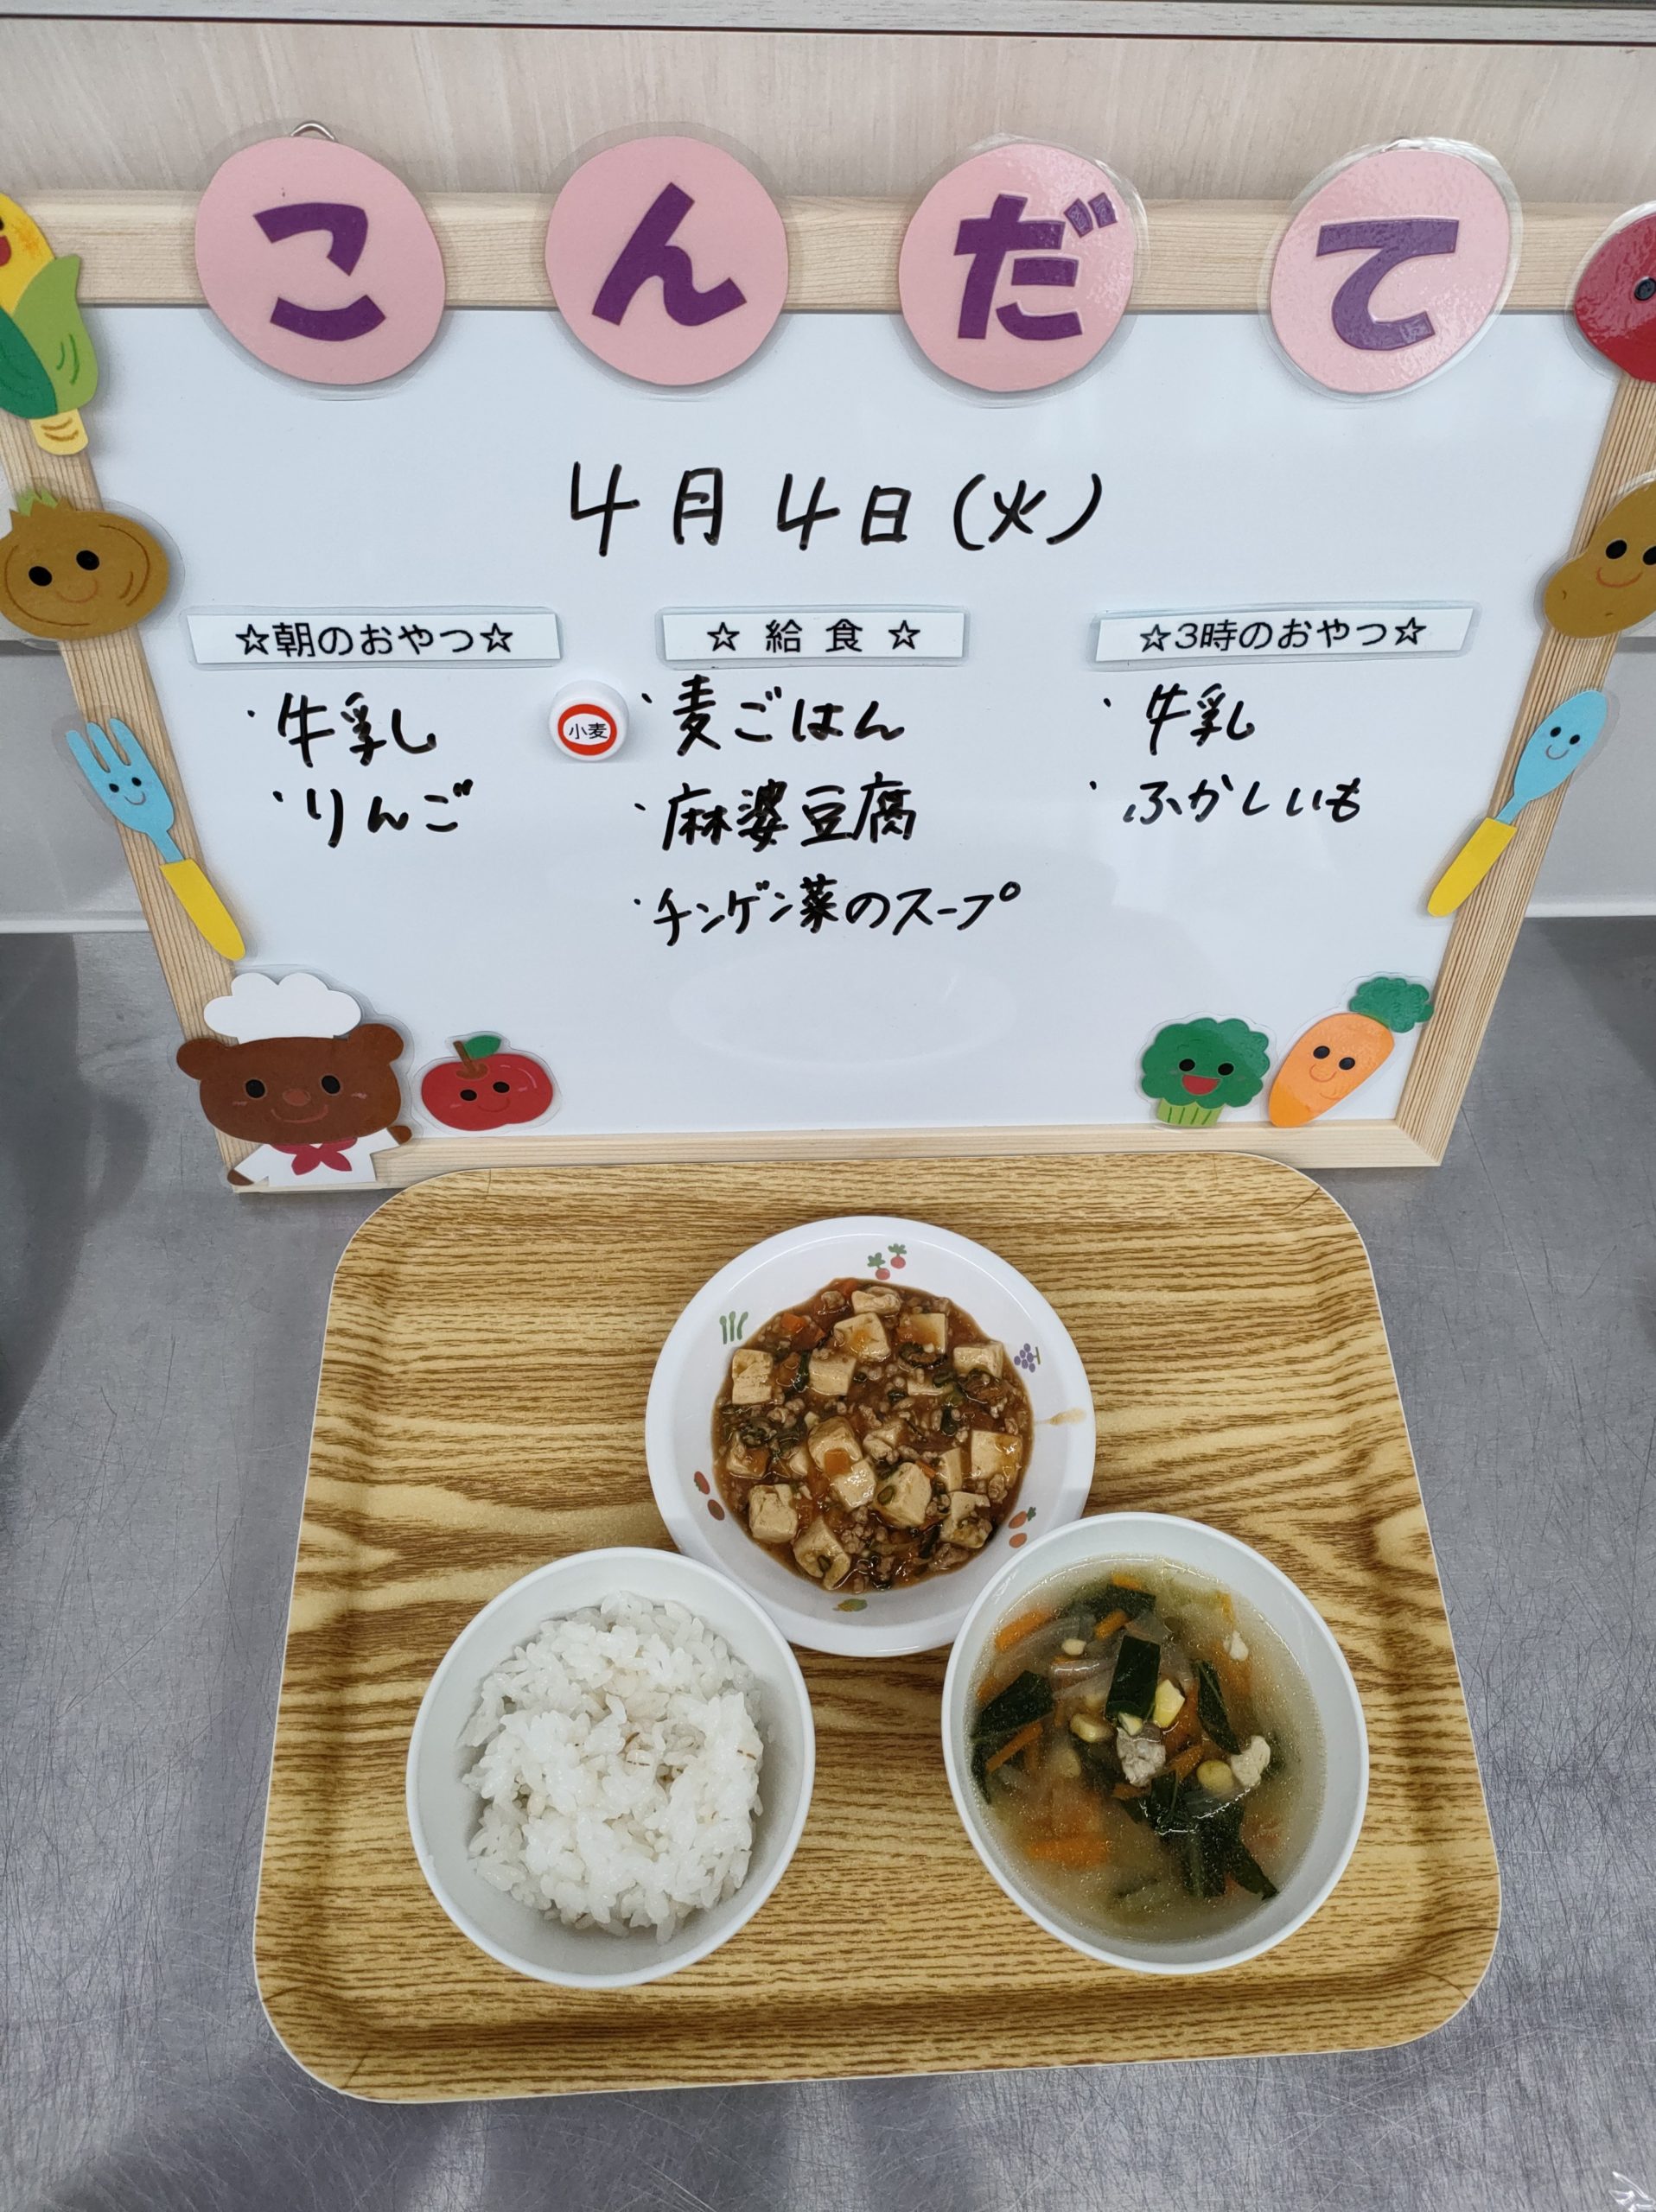 こんだて
4月4日(火)
☆朝のおやつ☆
・牛乳
・りんご
☆給食☆
小麦
・麦ごはん
・麻婆豆腐
・チンゲン菜のスープ
☆3時のおやつ☆
・牛乳
・ふかしいも